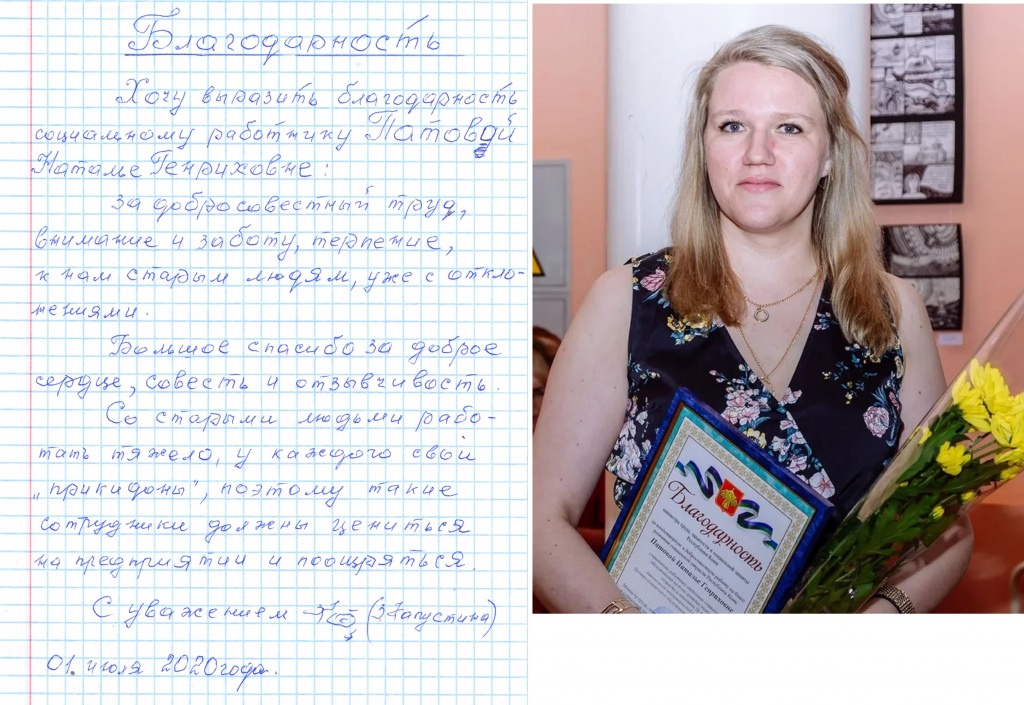 Благодарность
Хочу выразить благодарность
социальному работнику Патовой
Наталье Генриховне:
за добросовестный труд,
внимание и заботу, терпение,
к нам старым людям, уже с откло-
нениями.
Большое спасибо за доброе
сердце, совесть и отзывчивость.
Со старыми людьми рабо-
тать тяжело, у каждого свои
"прикидоны", поэтому такие
сотрудники должны цениться
на предприятии и поощряться.
С уважением (Запустина)
01. июля 2020 года.
Благодарность
министра труда, занятости и социальной защиты
Республики Коми
Патовой Наталье Генриховне